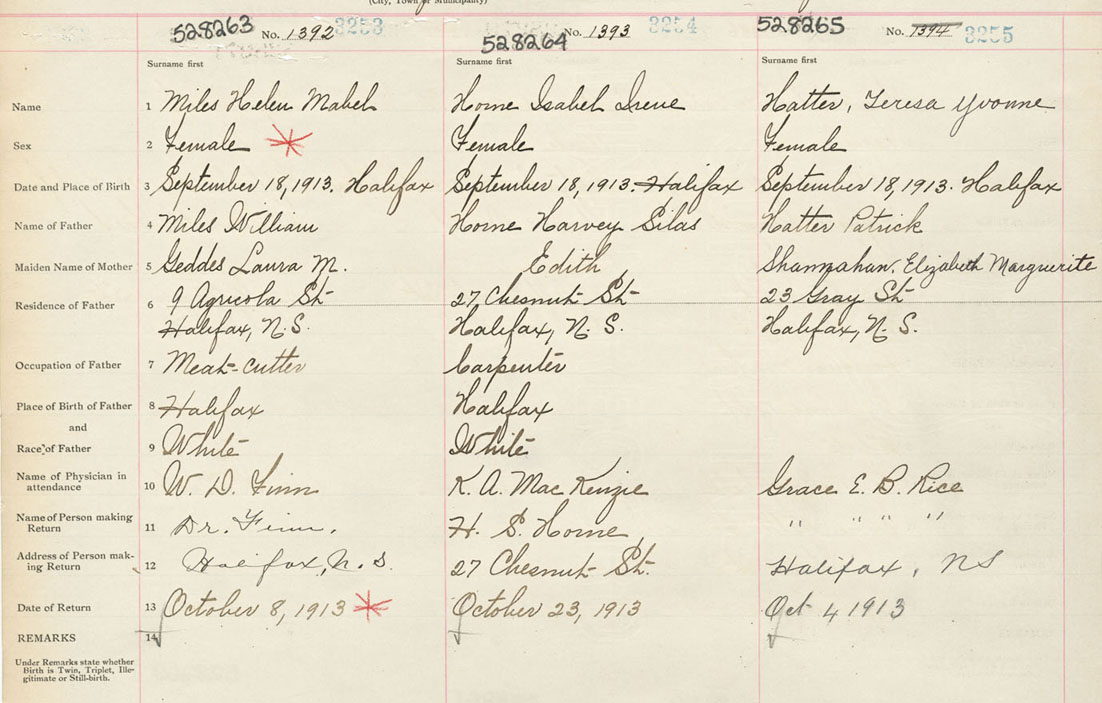 (City, Town or Municipality)
528263 No. 1392 3253 528264 No. 1393 3254 528265 No. 1394 3255
Surname first Surname first Surname first
Name 1 Miles Helen Mabel Horne Isabel Irene Hatter, Teresa Yvonne
Sex 2 Female Female Female
Date and Place of Birth 3 September 18, 1913. Halifax September 18, 1913. Halifax September 18, 1913. Halifax
Name of Father 4 Miles William Horne Harvey Silas Hatter Patrick
Maiden Name of Mother 5 Geddes Laura M. Edith Shannahan, Elizabeth Marguerite
Residence of Father 6 9 Agricola St 27 Chesnut St 23 Gray St
Halifax, N.S. Halifax, N.S. Halifax, N.S.
Occupation of Father 7 Meat-cutter Carpenter
Place of Birth of Father 8 Halifax Halifax
and
Race of Father 9 White White
Name of Physician in
attendance 10 W. D. Finn K. A. Mac Kenzie Grace E. B. Rice
Name of Person making
Return 11 Dr. Finn. H. S. Horne " " " "
Address of Person mak-
ing Return 12 Halifax, N.S. 27 Chesnut St. Halifax, NS
Date of Return 13 October 8, 1913 October 23, 1913 Oct 4 1913
REMARKS 14
Under Remarks state whether
Birth is Twin, Triplet, Ille-
gitimate or Still-birth.